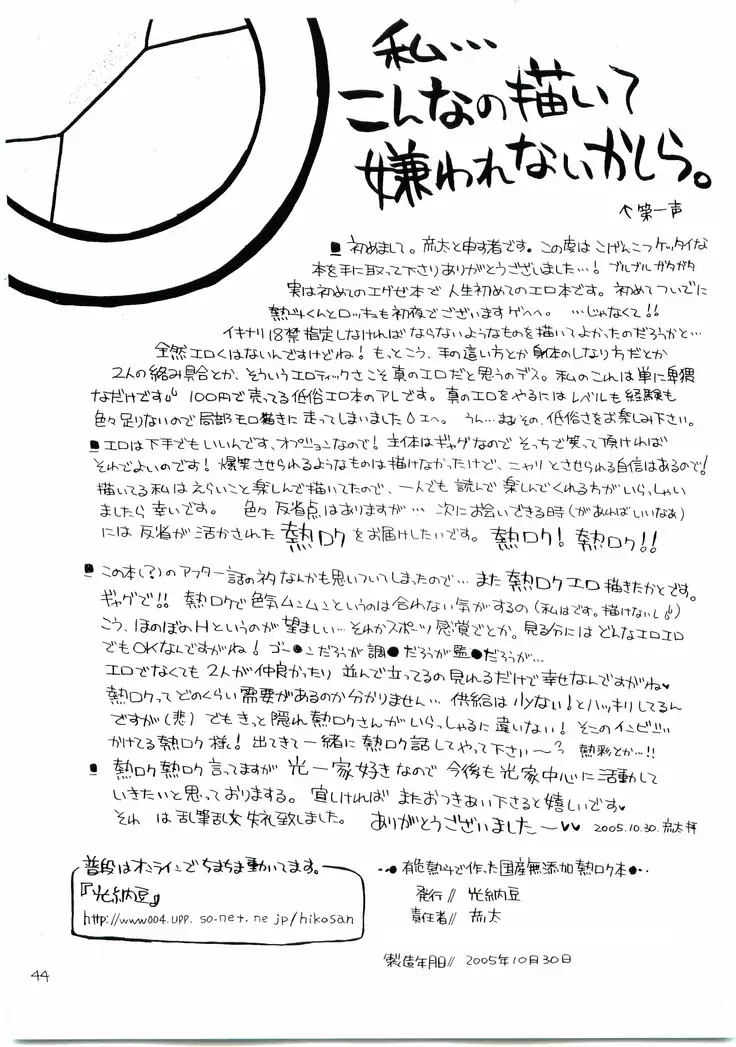 私…
こんなの描いて
嫌われないかしら。
↑第一声
■ 初めまして。 太と申す者です。この度はこげんこつケッタイな
本を手に取って下さりありがとうございました…! ブルブルガタガタ
実は初めてのエグゼ本で人生初めてのエロ本です。初めてついでに
熱斗くんとロックも初夜でございますゲヘヘ。 …じゃなくて!!
イキナリ18禁指定しなければならないようなものを描いてよかったのだろうかと…
全然エロくはないんですけどね! もっとこう、手の這い方とか身体のしなり方だとか
2人の絡み具合とか、そういうエロティックさこそ真のエロだと思うのデス。私のこれは単に卑猥
なだけです 100円で売ってる低俗エロ本のアレです。真のエロをやるにはレベルも経験も
色々足りないので局部モロ描きに走ってしまいました エヘ。 うん…まぁその、低俗さをお楽しみ下さい。
■ エロは下手でもいいんです、オプションなので! 主体はギャグなのでそっちで笑って頂ければ
それでよいのです! 爆笑させられるようなものは描けなかったけど、ニヤリとさせられる自信はあるので!
描いてる私はえらいこと楽しんで描いてたので、一人でも読んで楽しんでくれる方がいらっしゃい
ましたら幸いです。 色々反省点はありますが… 次にお会いできる時(があればいいなぁ)
には反省が活かされた熱ロクをお届けしたいです。熱ロク! 熱ロク!!
■ この本(?)のアフター話のネタなんかも思いついてしまったので…また熱ロクエロ描きたかとです。
ギャグで!! 熱ロクで色気ムンムンというのは合わない気がするの(私はです。描けないし)
こう、ほのぼのHというのが望ましい…それかスポーツ感覚でとか。見る分にはどんなエロエロ
でもOKなんですがね! ゴー●ンだろうが調●だろうが監●だろうが…
エロでなくても2人が仲良かったり並んで立ってるの見れるだけで幸せなんですがね♥
熱ロクってどのくらい需要があるのか分かりません… 供給は少ない!とハッキリしてるん
ですが(悲) でもきっと隠れ熱ロクさんがいらっしゃるに違いない! そこのインビジ
かけてる熱ロク様! 出てきて一緒に熱ロク話してやって下さい〜? 熱彩とか…!!
■ 熱ロク熱ロク言ってますが光一家好きなので今後も光家中心に活動して
いきたいと思っておりまする。 宜しければまたおつきあい下さると嬉しいです♥
それ は乱筆乱文失礼致しました。 ありがとうございました〜♥♥ 2005.10.30. 太拝
普段はオンラインでちまちま動いてます。
『光納豆』
http://www004.upp.so-net.ne.jp/hikosan
‥●有危熱斗で作った国産無添加熱ロク本●‥
発行// 光納豆
責任者// 太
製造年月日// 2005年10月30日
44